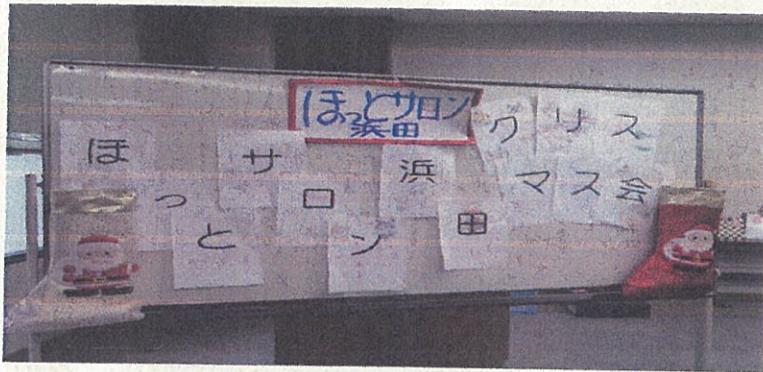 ほっとサロン
浜田
ほっとサロン浜田
クリス
マス会